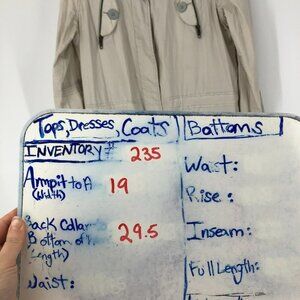 Tops, Dresses, Coats
INVENTORY # 235
Armpit to A 19
(Width)
Back Collar
Bottom of 29.5
(Length)
Waist:
Bottoms
Waist:
Rise:
Inseam:
Full Length: